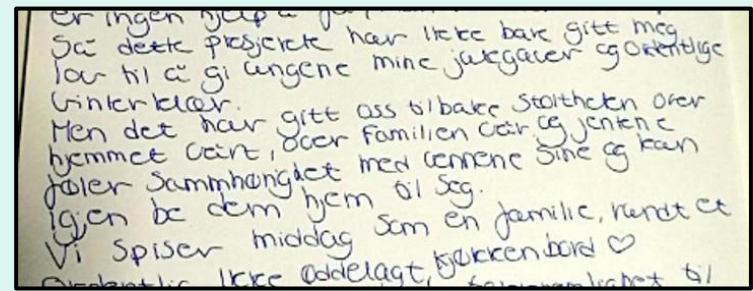 er ingen hjelp å
Så dette prosjektet har ikke bare gitt meg
lov til å gi ungene mine julegaver og ordentlige
vinterklær.
Men det har gitt oss tilbake stoltheten over
hjemmet vårt, over familien vår og jentene
føler sammhørighet med vennene sine og kan
igjen be dem hjem til seg.
Vi spiser middag som en familie, rundt et
ikke ødelagt, kjøkkenbord ♡
til